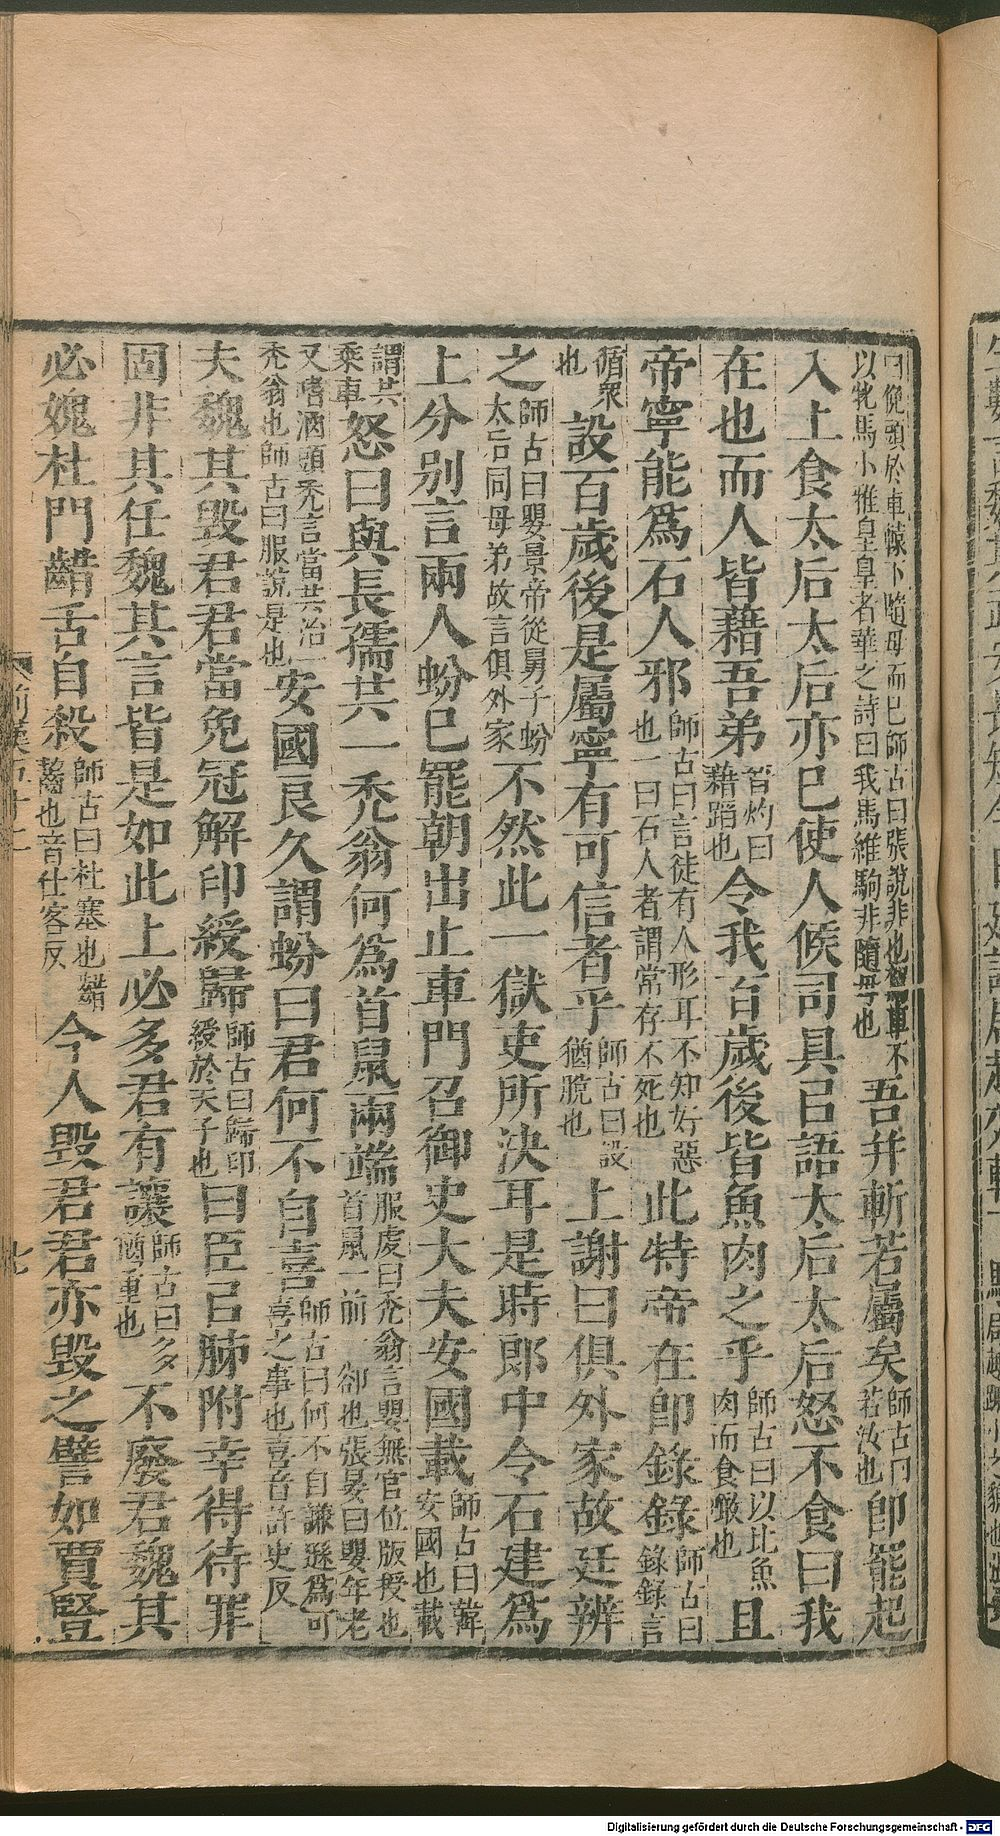 曰俛頭於車轅下隨母而已師古曰張說非也駕車不
以牝馬小雅皇皇者華之詩曰我馬維駒非隨母也
吾并斬若屬矣師古曰若汝也即罷起
入上食太后太后亦已使人候司具已語太后太后怒不食曰我
在也而人皆藉吾弟晉灼曰藉蹈也令我百歲後皆魚肉之乎師古曰以比魚肉而食噉也且
帝寧能爲石人邪師古曰言徒有人形耳不知好惡也一曰石人者謂常存不死也此特帝在即錄錄師古曰錄錄言
循眾也設百歲後是屬寧有可信者乎師古曰設猶脫也上謝曰俱外家故廷辨
之師古曰嬰景帝從舅子蚡太后同母弟故言俱外家不然此一獄吏所決耳是時郎中令石建爲
上分別言兩人蚡已罷朝出止車門召御史大夫安國載師古曰韓安國也載
謂共乘車怒曰與長孺共一禿翁何爲首鼠兩端服虔曰禿翁言嬰無官位版授也首鼠一前一卻也張晏曰嬰年老
又嗜酒頭禿言當共治一禿翁也師古曰服說是也安國良久謂蚡曰君何不自喜師古曰何不自謙遜爲可喜之事也喜音許吏反
夫魏其毀君君當免冠解印綬歸師古曰歸印綬於天子也曰臣以肺附幸得待罪
固非其任魏其言皆是如此上必多君有讓師古曰多猶重也不廢君魏其
必媿杜門齰舌自殺師古曰杜塞也齰齧也音仕客反今人毀君君亦毀之譬如賈豎
前漢五十二
Digitalisierung gefördert durch die Deutsche Forschungsgemeinschaft - DFG